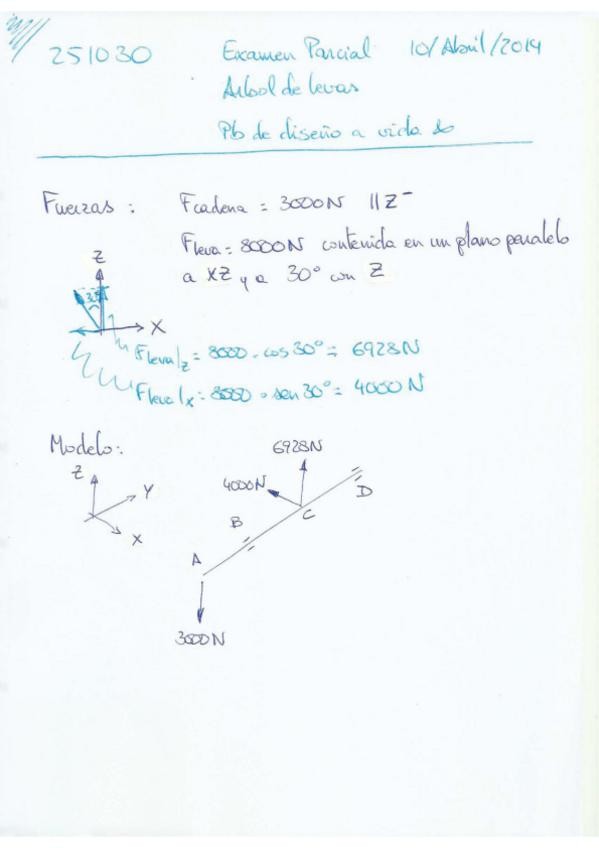 251030 Examen Parcial 10/Abril/2014
Arbol de levas
Pb de diseño a vida ∞
Fuerzas : Fcadena = 3000N || Z⁻
Fleva = 8000N contenida en un plano paralelo
a XZ y a 30° con Z
Z
30°
X
Fleva|z = 8000 · cos 30° = 6928N
Fleva|x = 8000 · sen 30° = 4000N
Modelo:
6928N
Z
Y
X
4000N
D
C
B
A
3000N